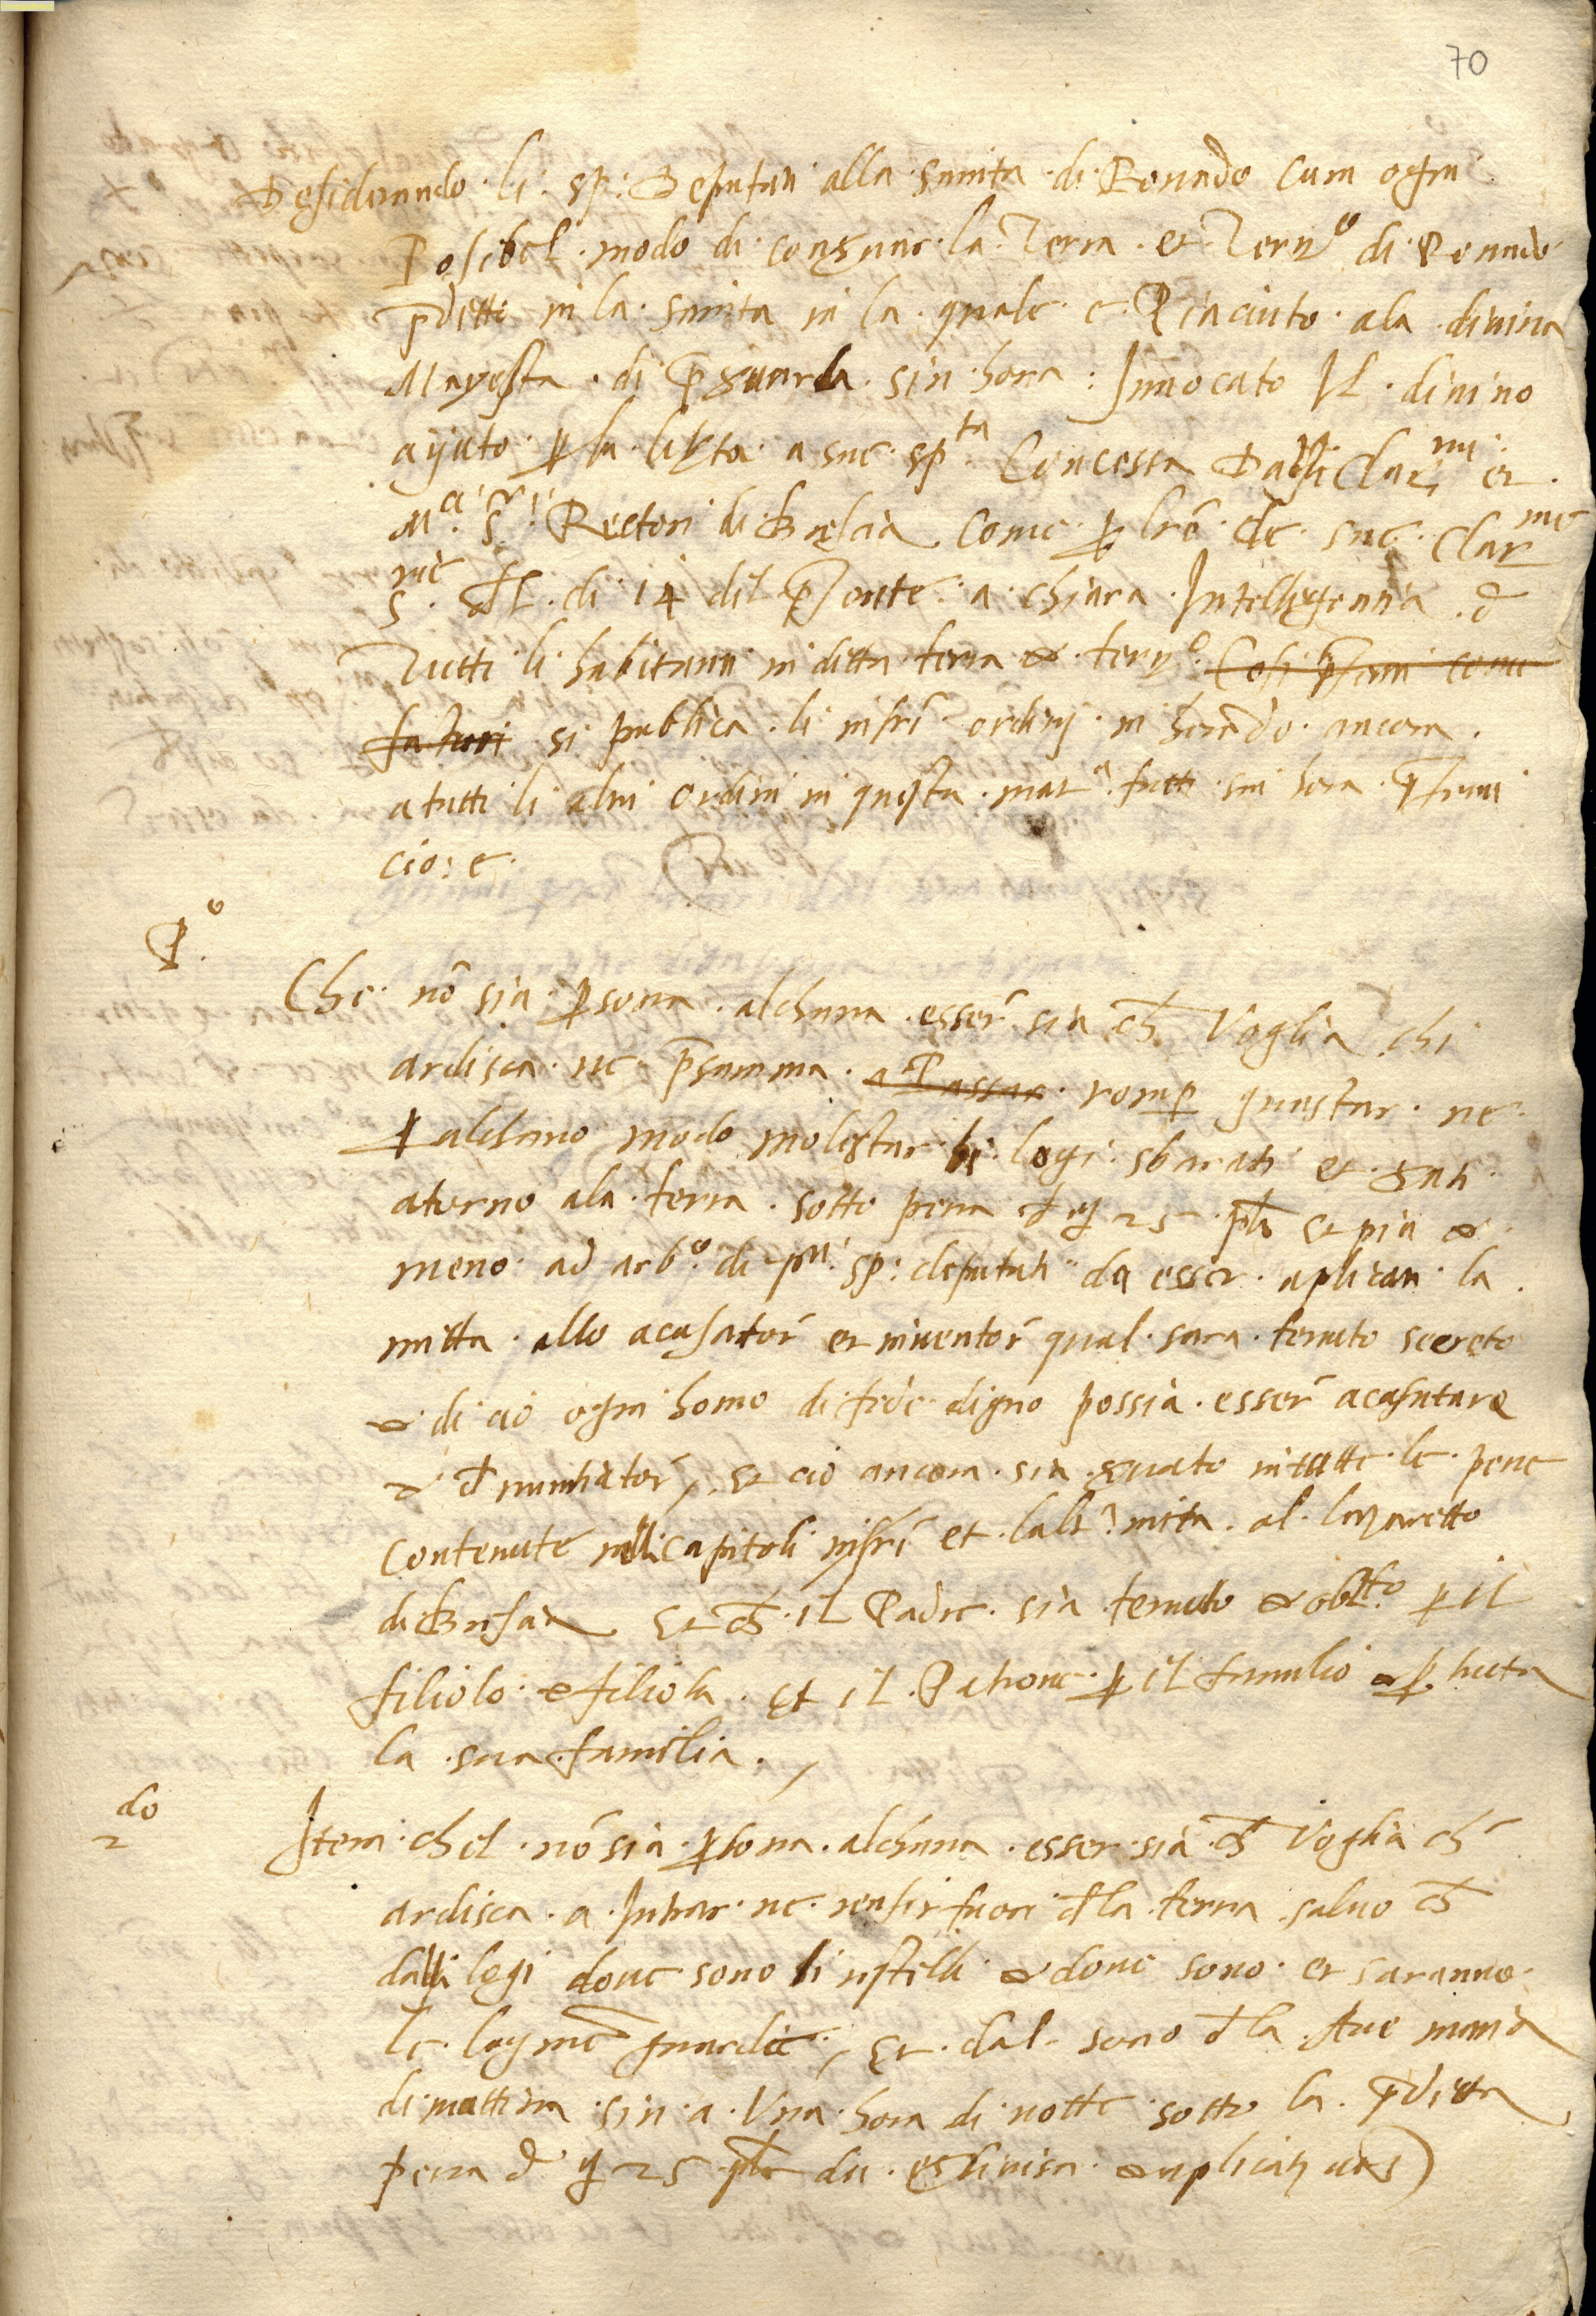 70
Desiderando li sp: Deputati alla sanita di Lonado cum ogni
Posibel modo di conservar la Terra et Terrº di Lonado
p̄ditto in la sanita in la quale e Piaciuto ala divina
Mayesta di p̄servarla sin hora: Invocato Il divino
ayuto ꝑ la liberta a sue spta Concessa Dalli Clarmi et
Mci Sri Rectori di Bressia come ꝑ lr̄e de sue Clarme
Srie del di 14 del p̄sente a chiara Intelligentia d
Tutti li habitanti in ditta terra et terrº Cosi p̄senti come
futuri si publica li infrī ordini in herendo ancora
a tutti li altri ordini in questa mata fatti sin hora p̄senti
cio: e
Pº
Che nō sia ꝑsona alchuna esser sia ch̄ Voglia chi
ardisca ne p̄summa a Passar romꝑ guastar ne
ꝑ alchuno modo molestar li logi sbarati et serati
aturno ala terra sotto pena d 25 pl̄ et piu et
meno ad arbº di pti sp: deputati da esser aplicati la
mitta allo acusator et inventor qual sara tenuto secreto
et di cio ogni homo di fede digno possia esser acasutare
et denuntiator, et cio ancora sia servato in tutte le pene
contenute nelli capitoli infrī et laltª mita al lazaretto
di Bressia Et ch̄ il Padre sia tenuto et obltº ꝑ il
filiolo e filiola et il Patrone ꝑ il famulio et ꝑ tutta
la sua familia.
2do
Item chel nō sia ꝑsona alchuna esser sia ch̄ Voglia ch̄
ardisca a Intrar ne ensir fuori dla terra salvo ch̄
dalli logi dove sono li rastelli et dove sono et saranno
le leg̅me guardie, Et dal sono dla Ave maria
di mattina sin a Una hora di notte sotto la p̄ditta
pena d 25 pl̄ da es divisa et aplicata uts)